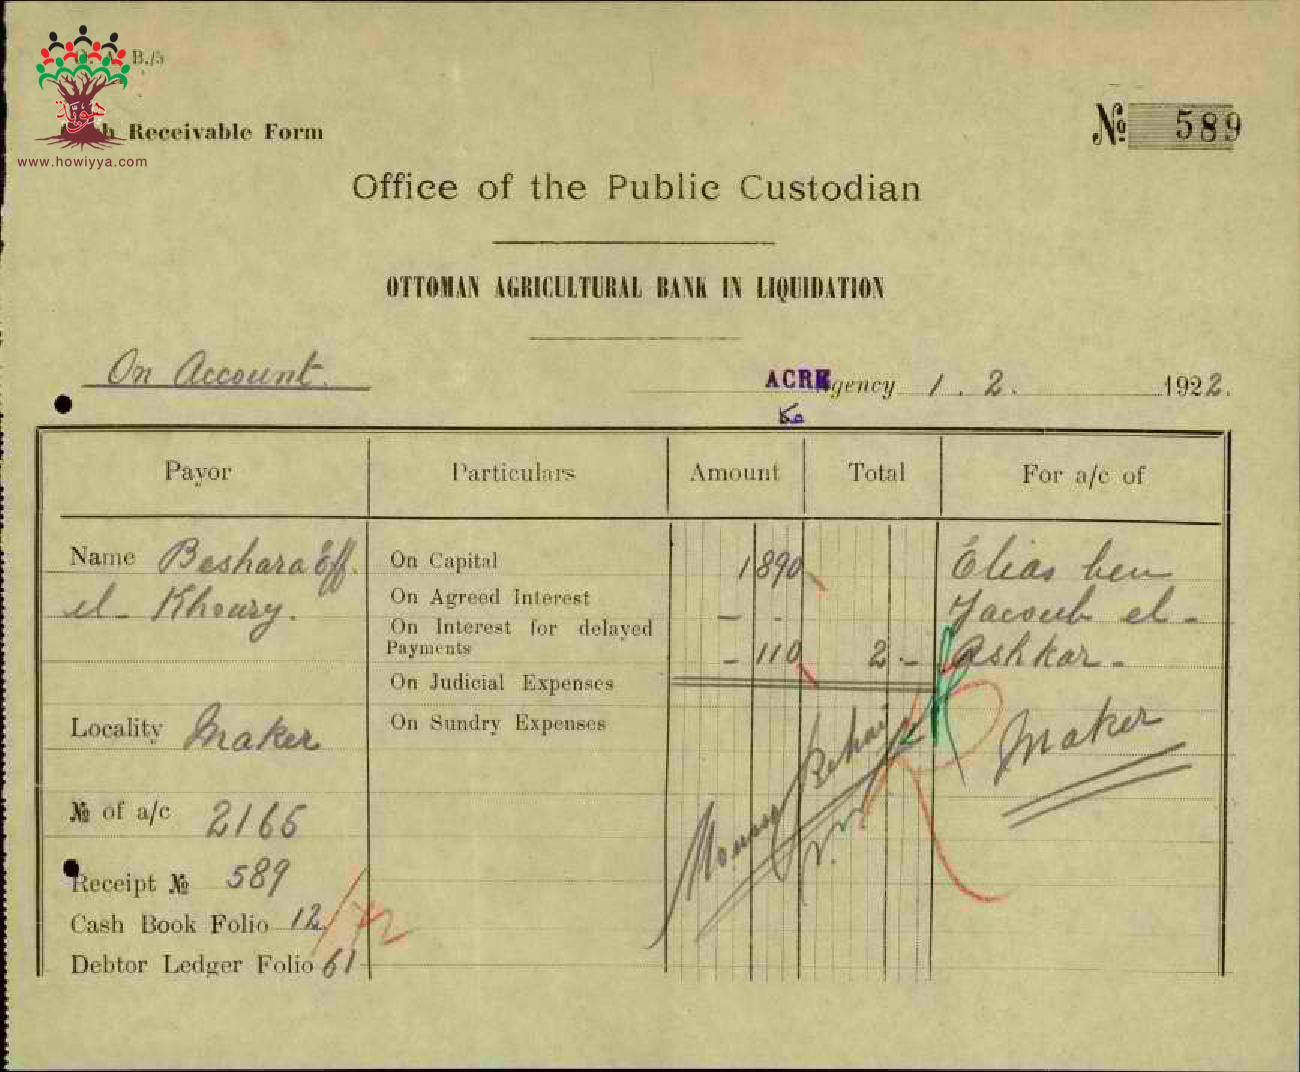 B./5
www.howiyya.com
Receivable Form
№ 589
Office of the Public Custodian
OTTOMAN AGRICULTURAL BANK IN LIQUIDATION
On Account.
ACRE gency 1. 2. 1922.
Payor Particulars Amount Total For a/c of
Name Beshara Eff. el- Khoury.
On Capital 1 890
On Agreed Interest — -
On Interest for delayed
Payments — 110 2 -
On Judicial Expenses
On Sundry Expenses
Elias ben
Jacoub el-
Ashkar -
Maker
Locality Maker
№ of a/c 2165
Receipt № 589
Cash Book Folio 12
Debtor Ledger Folio 61